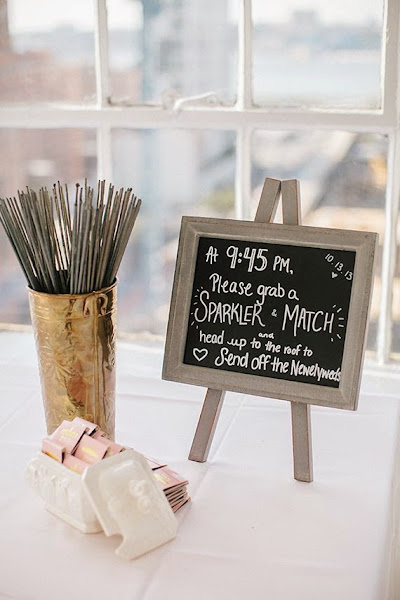 At 9:45 PM,
10.13.13
Please grab a
SPARKLER & MATCH
and
head up to the roof to
Send off the Newelyweds